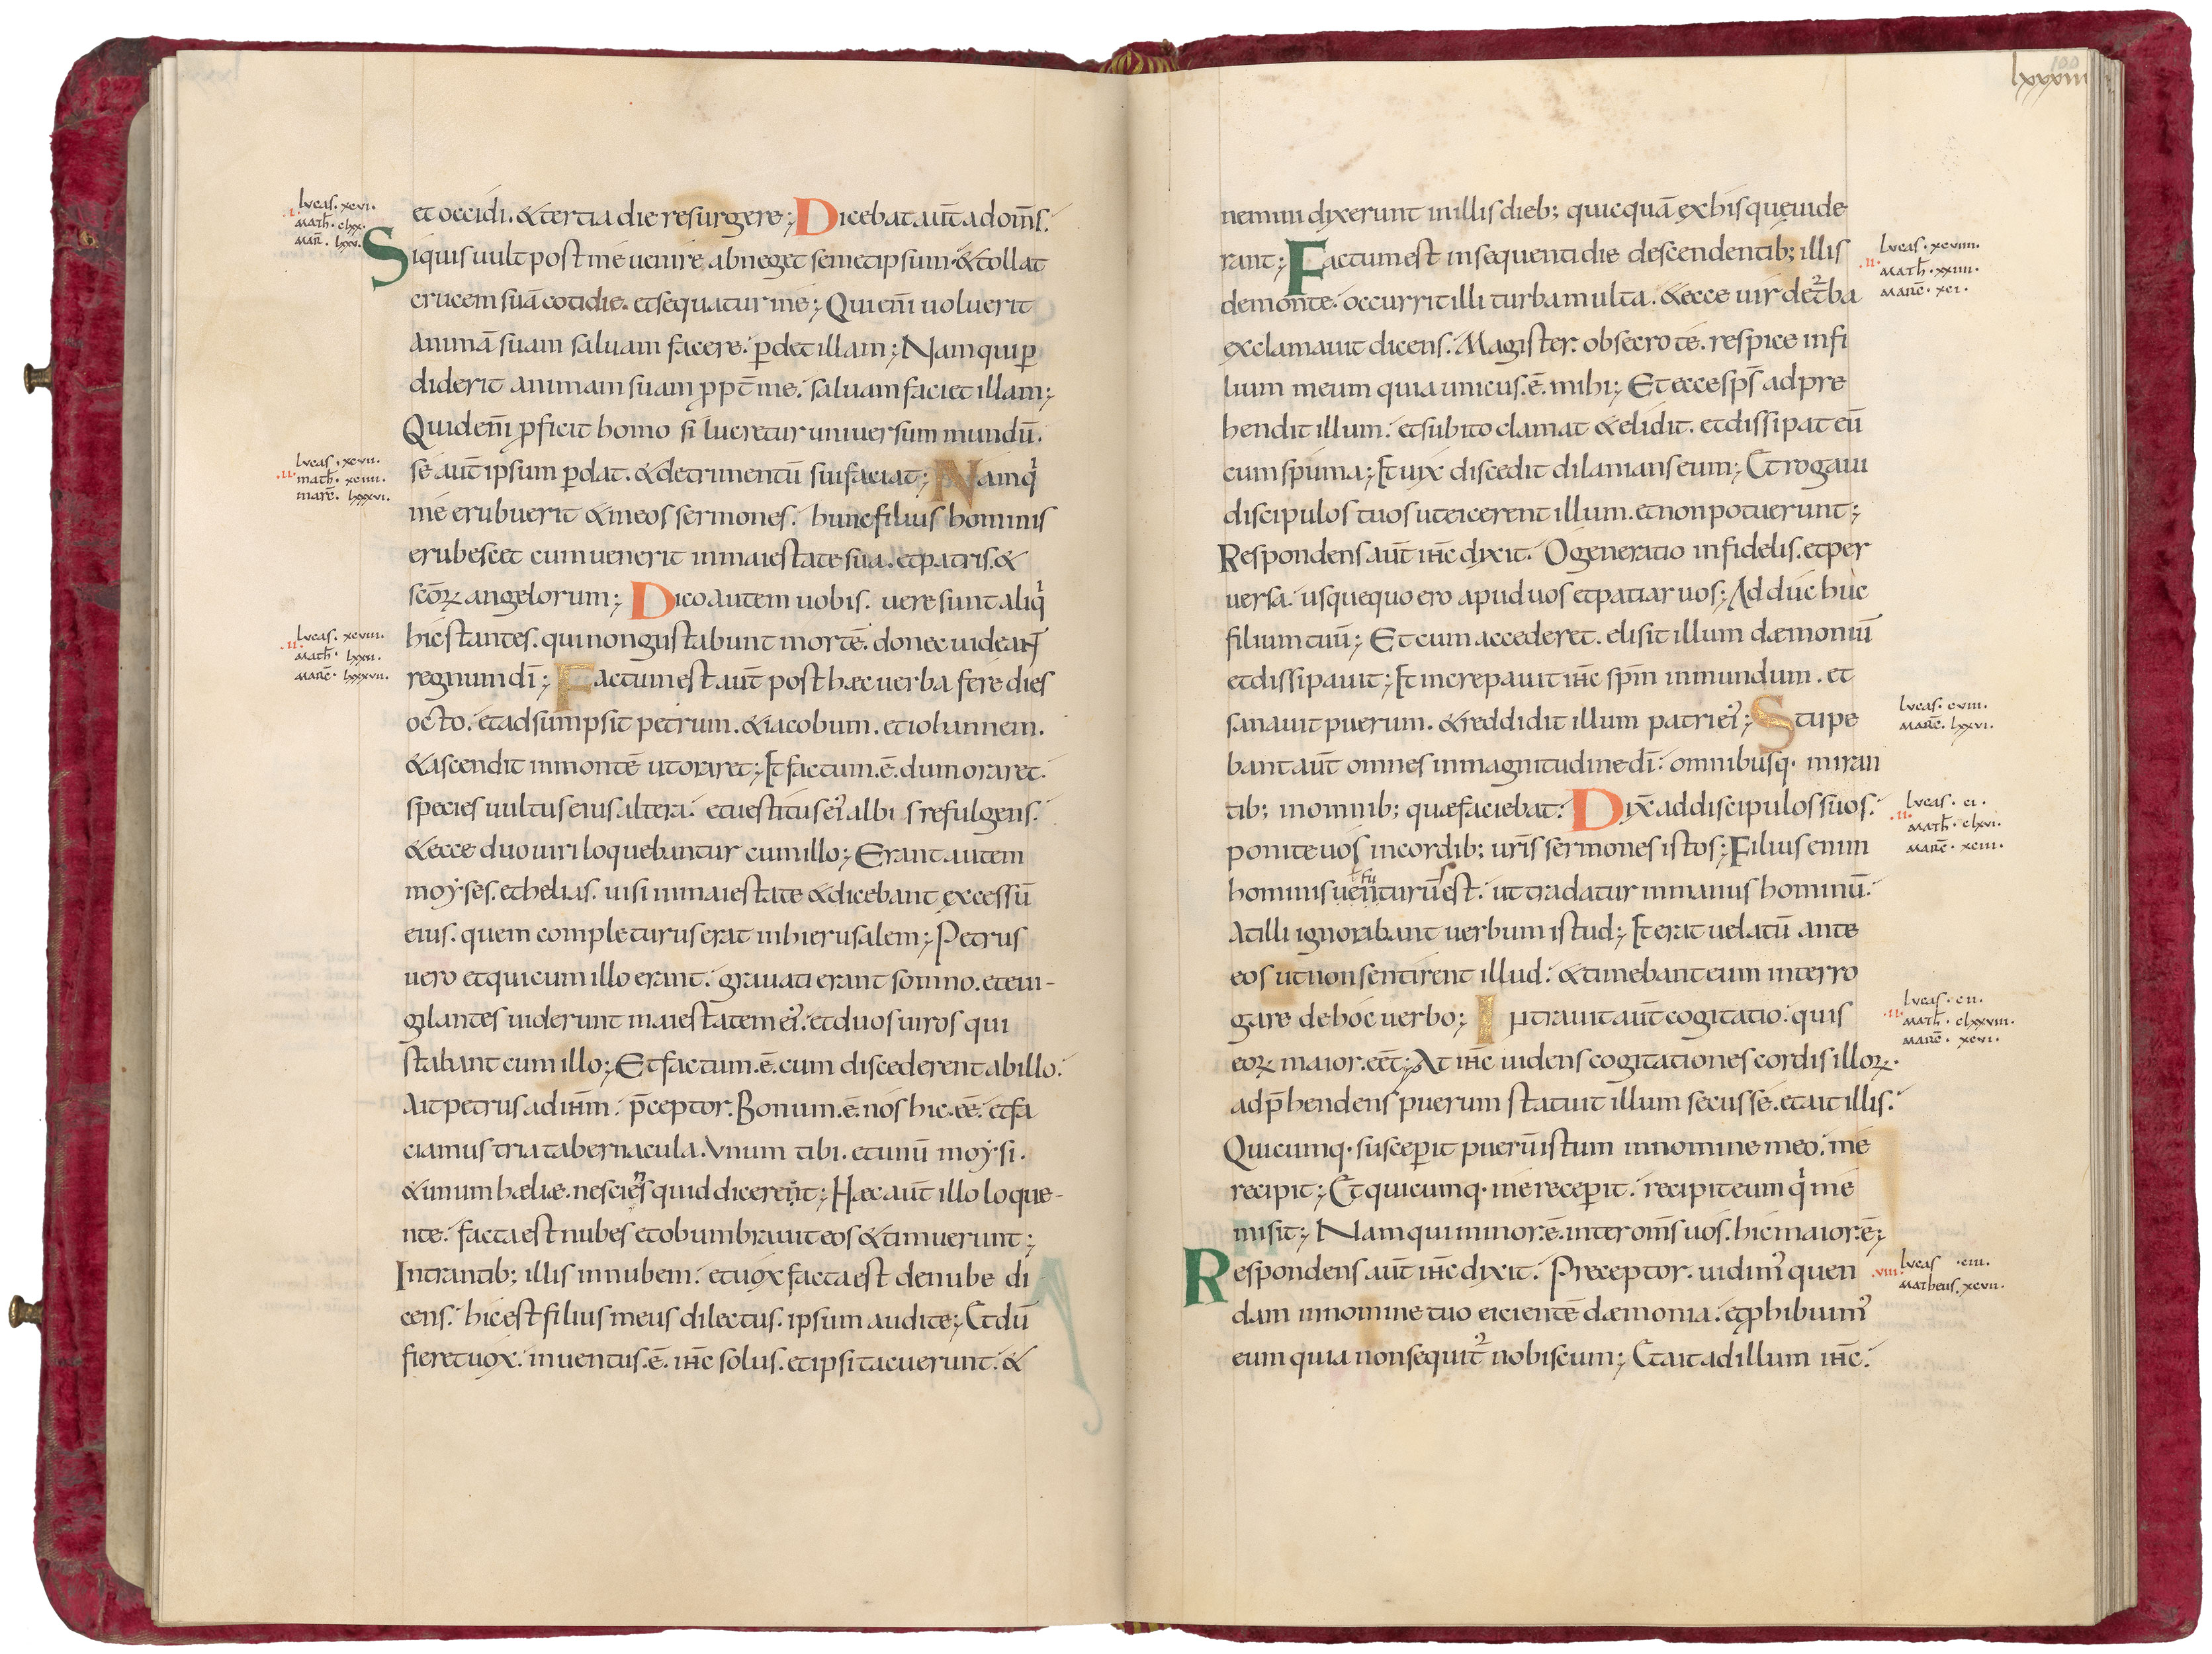 lucas. xcvi.
.i. math̄. clxx.
mar̄. lxxi.
et occidi. & tertia die resurgere; Dicebat aut̄ ad om̄s.
Siquis uult post me uenire abneget semetipsum. & tollat
crucem suā cotidie. et sequatur me; Qui eni̅ uoluerit
animā suam saluam facere. ꝑdet illam; Nam qui ꝑ
diderit animam suam ꝓpt̄ me. saluam faciet illam;
Quid eni̅ ꝓficit homo si lucretur uniuersum mundū.
lucas. xcvii.
.ii. math̄. xciiii.
marc̄. lxxxvi.
se aut̄ ipsum ꝑdat. & detrimentū sui faciat; Nam qͥ
me erubuerit & meos sermones. hunc filius hominis
erubescet cum uenerit in maiestate sua. et patris. &
sc̄oꝝ angelorum; Dico autem uobis. uere sunt aliqͥ
lucas. xcviii.
.ii. math̄. lxxii.
marc̄. lxxxvii.
hic stantes. qui non gustabunt mortē. donec uideant
regnum dī; Factum est aut̄ post hæc uerba fere dies
octo. et adsumpsit petrum. & iacobum. et iohannem.
& ascendit in montē ut oraret; Et factum .ē. dum oraret.
species uultus eius altera. et uestitus eiꝰ albis refulgens.
& ecce duo uiri loquebantur cum illo; Erant autem
moyses. et helias. uisi in maiestate & dicebant excessū
eius. quem completurus erat in hierusalem; Petrus
uero et qui cum illo erant. grauati erant somno. et eui-
gilantes uiderunt maiestatem eiꝰ. et duos uiros qui
stabant cum illo; Et factum .ē. cum discederent ab illo.
Ait petrus ad ih̄m. p̄ceptor. Bonum .ē. nos hic .ee̅. et fa
ciamus tria tabernacula. Vnum tibi. et unū moysi.
& unum hæliæ. nesciens quid diceret; Hæc aut̄ illo loque-
nte. facta est nubes et obumbrauit eos & timuerunt;
Intrantib; illis in nubem. et uox facta est de nube di
cens. hic est filius meus dilectus. ipsum audite; Et dū
fieret uox. inuentus .ē. ih̄c solus. et ipsi tacuerunt. &
100
lxxxiii
nemini dixerunt in illis dieb; quicquā ex his quę uide
rant; Factum est in sequenti die descendentib; illis
lucas. xcviiii.
.ii. math̄. xxiiii.
marc̄. xci.
de monte. occurrit illi turba multa. & ecce uir de turba
exclamauit dicens. Magister. obsecro te. respice in fi
lium meum quia unicus .ē. mihi; Et ecce sps̄ adpre
hendit illum. et subito clamat & elidit. et dissipat eū
cum spuma; Et uix discedit dilanians eum; Et rogaui
discipulos tuos ut eicerent illum. et non potuerunt;
Respondens aut̄ ih̄c dixit. O generatio infidelis. et per
uersa. usquequo ero apud uos et patiar uos; Adduc huc
filium tuū; Et cum accederet. elisit illum dæmoniū
et dissipauit; Et increpauit ih̄c spm̄ inmundum. et
sanauit puerum. & reddidit illum patri eiꝰ; Stupe
lucas. cviii.
marc̄. lxxvi.
bant aut̄ omnes in magnitudine dī. omnibusq. miran
tib; in omnib; quæ faciebat. Dix̄ ad discipulos suos.
lucas. ci.
.ii. math̄. clxvi.
marc̄. xciii.
ponite uos in cordib; uris̄ sermones istos; Filius enim
hominis uenturū est. ut tradatur in manus hominū.
At illi ignorabant uerbum istud; Et erat uelatū ante
eos ut non sentirent illud. & timebant eum interro
gare de hoc uerbo; Intrauit aut̄ cogitatio. quis
lucas. cii.
.ii. math̄. clxxviii.
marc̄. xcvi.
eoꝝ maior .eet̅; At ih̄c uidens cogitationes cordis illoꝝ.
adp̄hendens puerum statuit illum secus se. et ait illis.
Quicumq. susceꝑit puerū istum in nomine meo. me
recipit; Et quicumq. me receꝑit. recipit eum qͥ me
misit; Nam qui minor .ē. inter om̄s uos. hic maior .ē;
Respondens aut̄ ih̄c dixit. Preceptor. uidimꝰ quen
lucas .ciii.
.viii. Matheus. xcvii.
dam in nomine tuo eicientē dæmonia. et ꝓhibuimꝰ
eum quia non sequitur nobiscum; Et ait ad illum ih̄c.